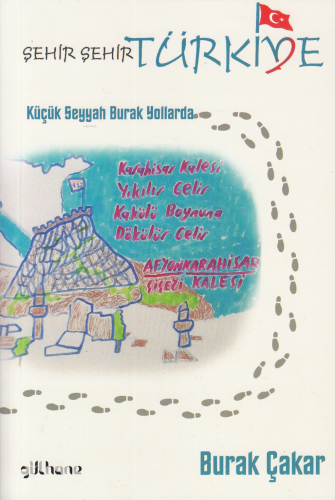 ŞEHİR ŞEHİR TÜRKİYE
Küçük Seyyah Burak Yollarda
Karahisar Kalesi
Yıkılır Gelir
Kakülü Boynuna
Dökülür Gelir
AFYONKARAHİSAR
KALESİ
gülhane
Burak Çakar